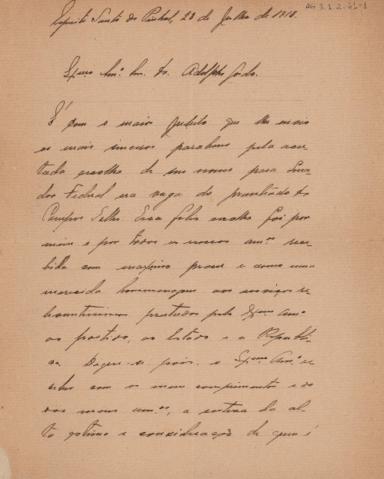 AG 3.1.2.21-1
Espirito Santo do Pinhal, 28 de Julho de 1913.
Exmo Amo Snr Dr. Adolpho Gordo.
É com o maior jubilo que lhe envio
os mais sinceros parabens pela acer
tada escolha de seu nome para Sena
dor Federal na vaga do pranteado Dr
Campos Salles. Essa feliz escolha foi por
mim e por todos os nossos amos rece
bida com maximo prazer e como uma
merecida homenagem aos serviços re
levantissimos prestados pelo Exmo Amo
ao partido, ao Estado e a Republi
ca. Digne-se pois, o Exmo Amo re
ceber com os meus comprimentos e os
dos meus amos, a certeza da al
ta estima e consideração de quem é